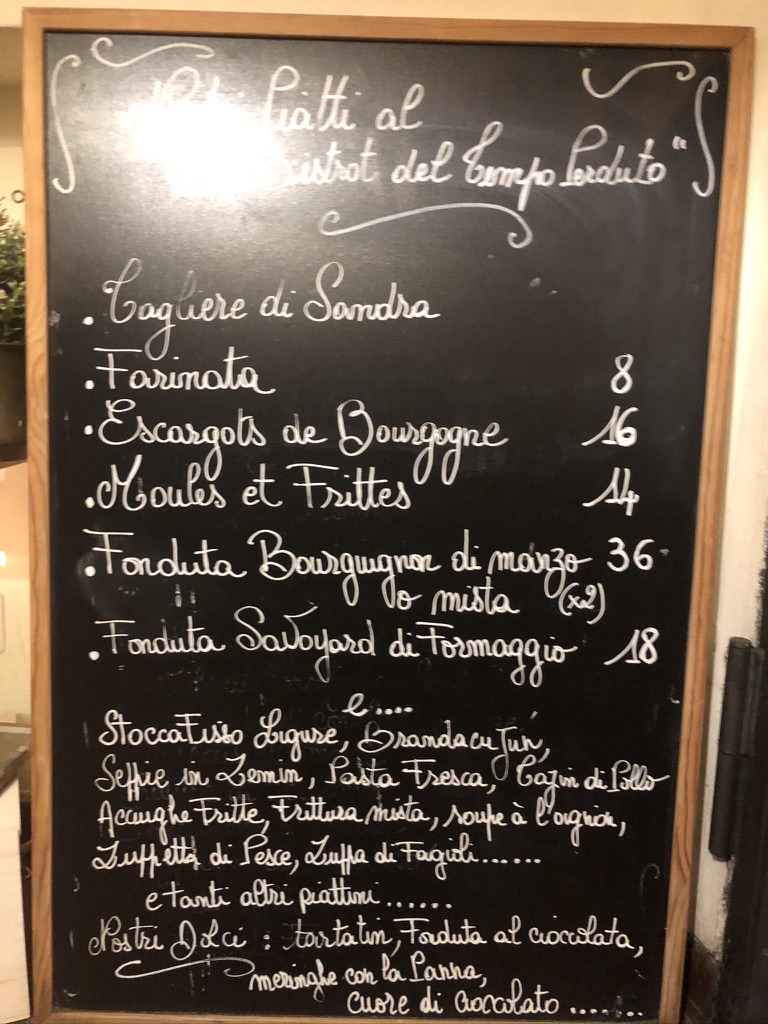 Piatti al
Bistrot del Tempo Perduto"
. Tagliere di Sandra
. Farinata 8
. Escargots de Bourgogne 16
. Moules et Frittes 14
. Fonduta Bourguignon di manzo 36
o mista (x2)
. Fonduta Savoyard di Formaggio 18
e....
Stoccafisso Ligure, Brandacujun,
Seppie in Zemin, Pasta Fresca, Tajin di Pollo
Acciughe Fritte, Frittura mista, soupe à l'oignon,
Zuppetta di Pesce, Zuppa di Fagioli......
e tanti altri piattini......
Nostri Dolci : tartatin, Fonduta al cioccolata,
meringhe con la Panna,
cuore di cioccolato.......